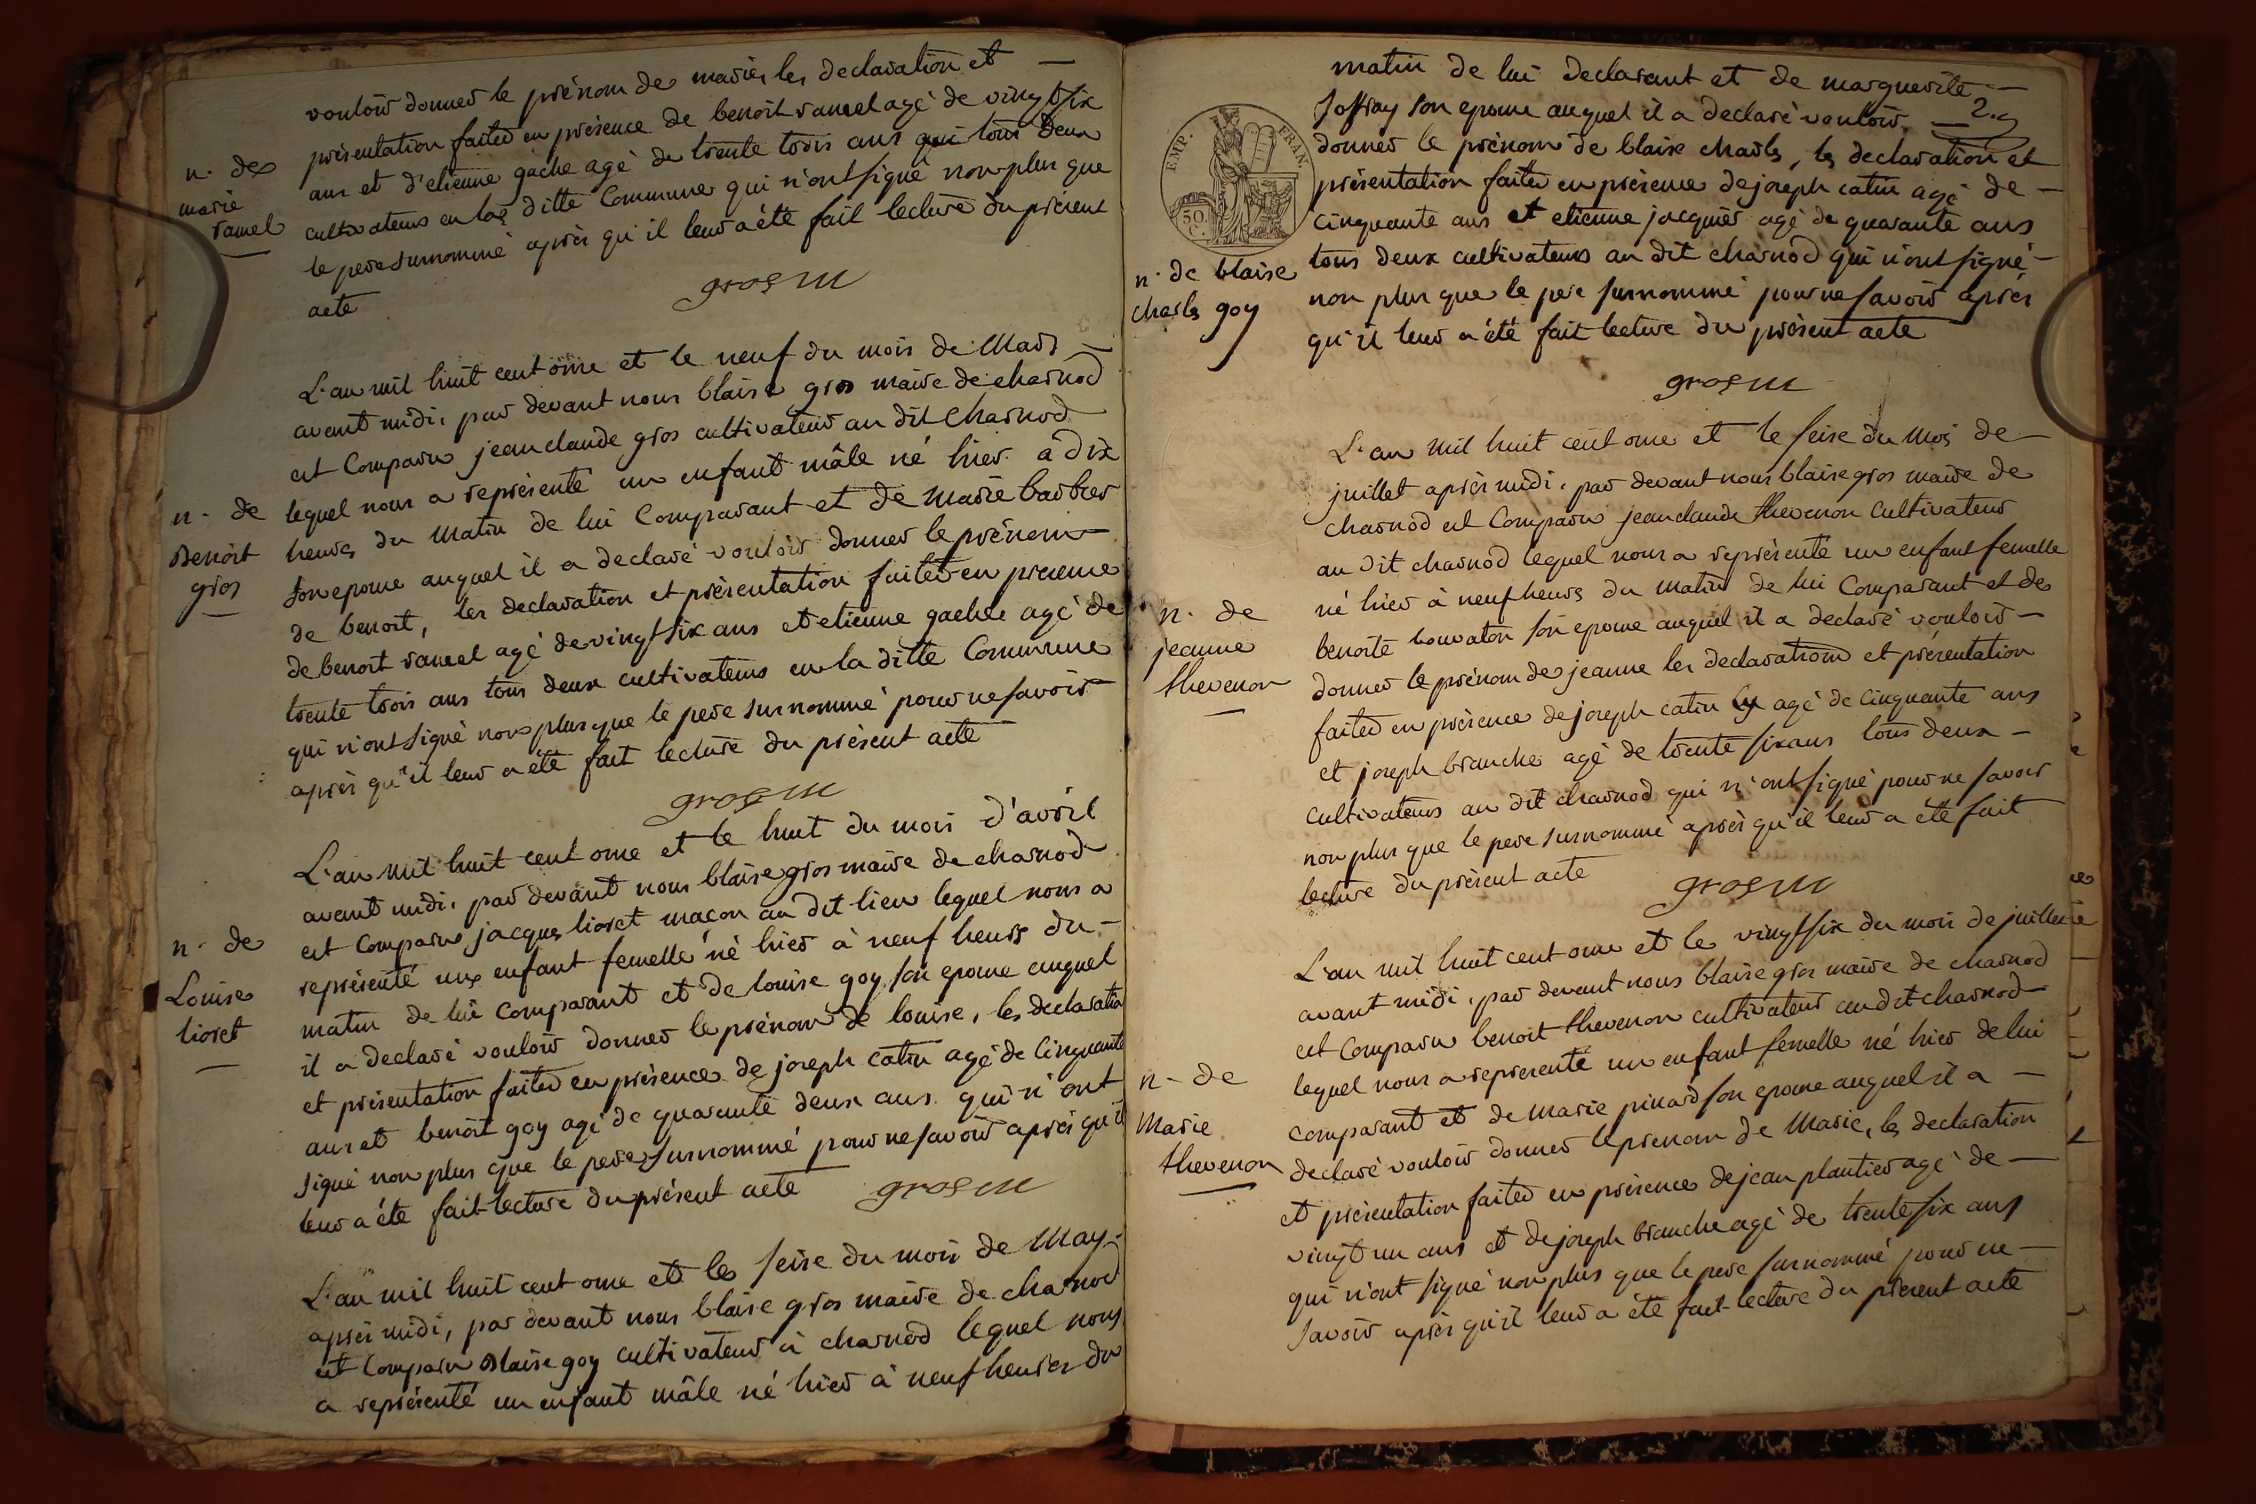 vouloir donner le prénom de marie, les declaration et —
n. de
marie
ramel
présentation faites en présence de benoit ramel agé de vingt six
ans et d'etienne gache agé de trente trois ans qui tous deux
cultivateurs en la ditte Commune qui n'ont signé non plus que
le pere surnommé après qu'il leur a été fait lecture du present
acte
gros m
L'an mil huit cent onze et le neuf du mois de Mars —
avant midi, par devant nous blaise gros maire de charnod
est Comparu jean claude gros cultivateur au dit Charnod
n. de
Benoit
gros
lequel nous a représenté un enfant mâle né hier à dix
heures du Matin de lui Comparant et de Marie barbier
son epouse auquel il a declaré vouloir donner le prénom
de benoit, les declaration et présentation faites en presence
de benoit ramel agé de vingt six ans et etienne gache agé de
trente trois ans tous deux cultivateurs en la ditte Commune
qui n'ont signé non plus que le pere surnommé pour ne savoir
après qu'il leur a été fait lecture du présent acte
gros m
L'an mil huit cent onze et le huit du mois d'avril
avant midi, par devant nous blaise gros maire de charnod
est Comparu jacques lioret maçon au dit lieu lequel nous a
n. de
Louise
lioret
—
représenté un enfant femelle né hier à neuf heures du —
matin de lui Comparant et de louise goy son epouse auquel
il a declaré vouloir donner le prénom de louise, les declaration
et présentation faites en présence de joseph catin agé de Cinquante
ans et benoit goy agé de quarante deux ans qui n'ont
signé non plus que le pere surnommé pour ne savoir après qu'il
leur a été fait lecture du présent acte
gros m
L'an mil huit cent onze et le seise du mois de May
après midi, par devant nous blaise gros maire de charnod
est Comparu Blaise goy cultivateur à charnod lequel nous
a représenté un enfant mâle né hier à neuf heures du
matin de lui declarant et de marguerite —
EMP. FRAN.
50.
C.
joffray son epouse auquel il a declaré vouloir —
donner le prénom de blaise charles, les declaration et
présentation faites en présence de joseph catin agé de —
cinquante ans et etienne jacquier agé de quarante ans
n. de blaise
charles goy
tous deux cultivateurs au dit charnod qui n'ont signé —
non plus que le pere surnommé pour ne savoir après
qu'il leur a été fait lecture du présent acte
gros m
L'an Mil huit cent onze et le seise du Mois de —
juillet après midi, par devant nous blaise gros maire de
charnod est Comparu jean claude thevenon Cultivateur
au dit charnod lequel nous a représenté un enfant femelle
n. de
jeanne
thevenon
—
né hier à neuf heures du matin de lui Comparant et de
benoite son epouse auquel il a declaré vouloir —
donner le prénom de jeanne les declaration et présentation
faites en présence de joseph catin agé de Cinquante ans
et joseph branche agé de trente six ans tous deux —
cultivateurs au dit charnod qui n'ont signé pour ne savoir
non plus que le pere surnommé après qu'il leur a été fait
lecture du présent acte
gros m
L'an mil huit cent onze et le vingt six du mois de juillet
avant midi, par devant nous blaise gros maire de charnod
est Comparu benoit thevenon cultivateur au dit charnod
n. de
Marie
thevenon
—
lequel nous a representé un enfant femelle né hier de lui
comparant et de Marie pinard son epouse auquel il a —
declaré vouloir donner le prenom de Marie, les declaration
et présentation faites en présence de jean plantier agé de —
vingt un ans et de joseph branche agé de trente six ans
qui n'ont signé non plus que le pere surnommé pour ne —
savoir après qu'il leur a été fait lecture du présent acte